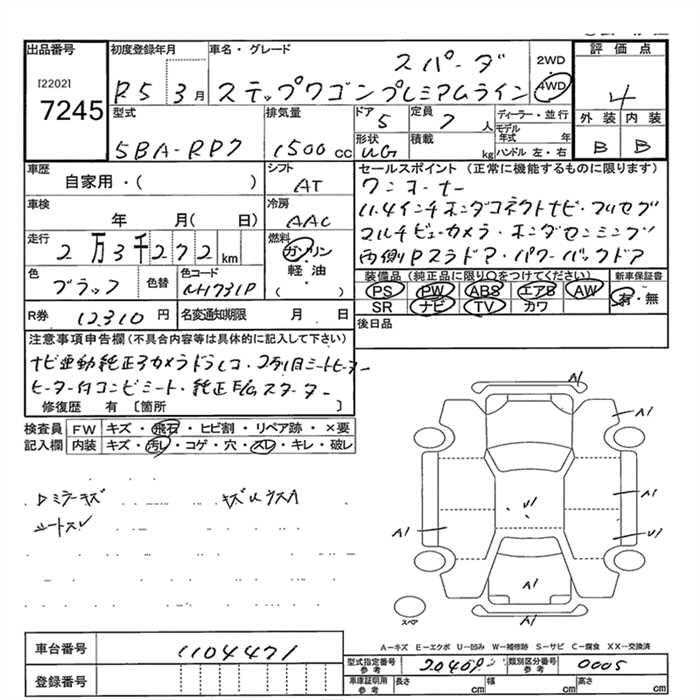 出品番号 初度登録年月 車名・グレード 評価点
[2202] スパーダ 2WD
7245 R5 3月 ステップワゴンプレミアムライン 4WD 4
型式 排気量 ドア 定員 ディーラー・並行 外装 内装
5BA-RP7 1500cc 5 7人 モデル年式 年 B B
形状 積載
UG kg ハンドル 左・右
車歴 シフト セールスポイント (正常に機能するものに限ります)
自家用・( ) AT ワンオーナー
車検 冷房 11.4インチホンダコネクトナビ・フルセグ
年 月( 日) AAC マルチビューカメラ・ホンダセンシング
走行 燃料 両側Pスラドア・パワーバックドア
2万3千272km ガソリン
軽・油
( )
色 色替 色コード 装備品 (純正品に限り○をつけてください) 新車保証書
ブラック NH731P PS PW ABS エアB AW 有・無
SR ナビ TV カワ
R券 12310円 名変通知期限 月 日 後日品
注意事項申告欄 (不具合内容等は具体的に記入して下さい)
ナビ連動純正ヨカメラドラレコ・2列目シートヒーター
ヒーター付コンビシート・純正E/Gスターター
修復歴 有 〔箇所 〕
検査員 FW キズ・飛石・ヒビ割・リペア跡・×要
記入欄 内装 キズ・汚レ・コゲ・穴・スレ・キレ・破レ
ロミラーキズ キズUウスハ
シートスレ
A1
A1
U1
A1
A1
U1
A1
A1
スペア
A―キズ E―エクボ U―凹み W―補修跡 S―サビ C―腐食 XX―交換済
車台番号 1104471
型式指定番号 参考 20409 類別区分番号 参考 0005
登録番号 車庫証明用 参考 長さ cm 幅 cm 高さ cm